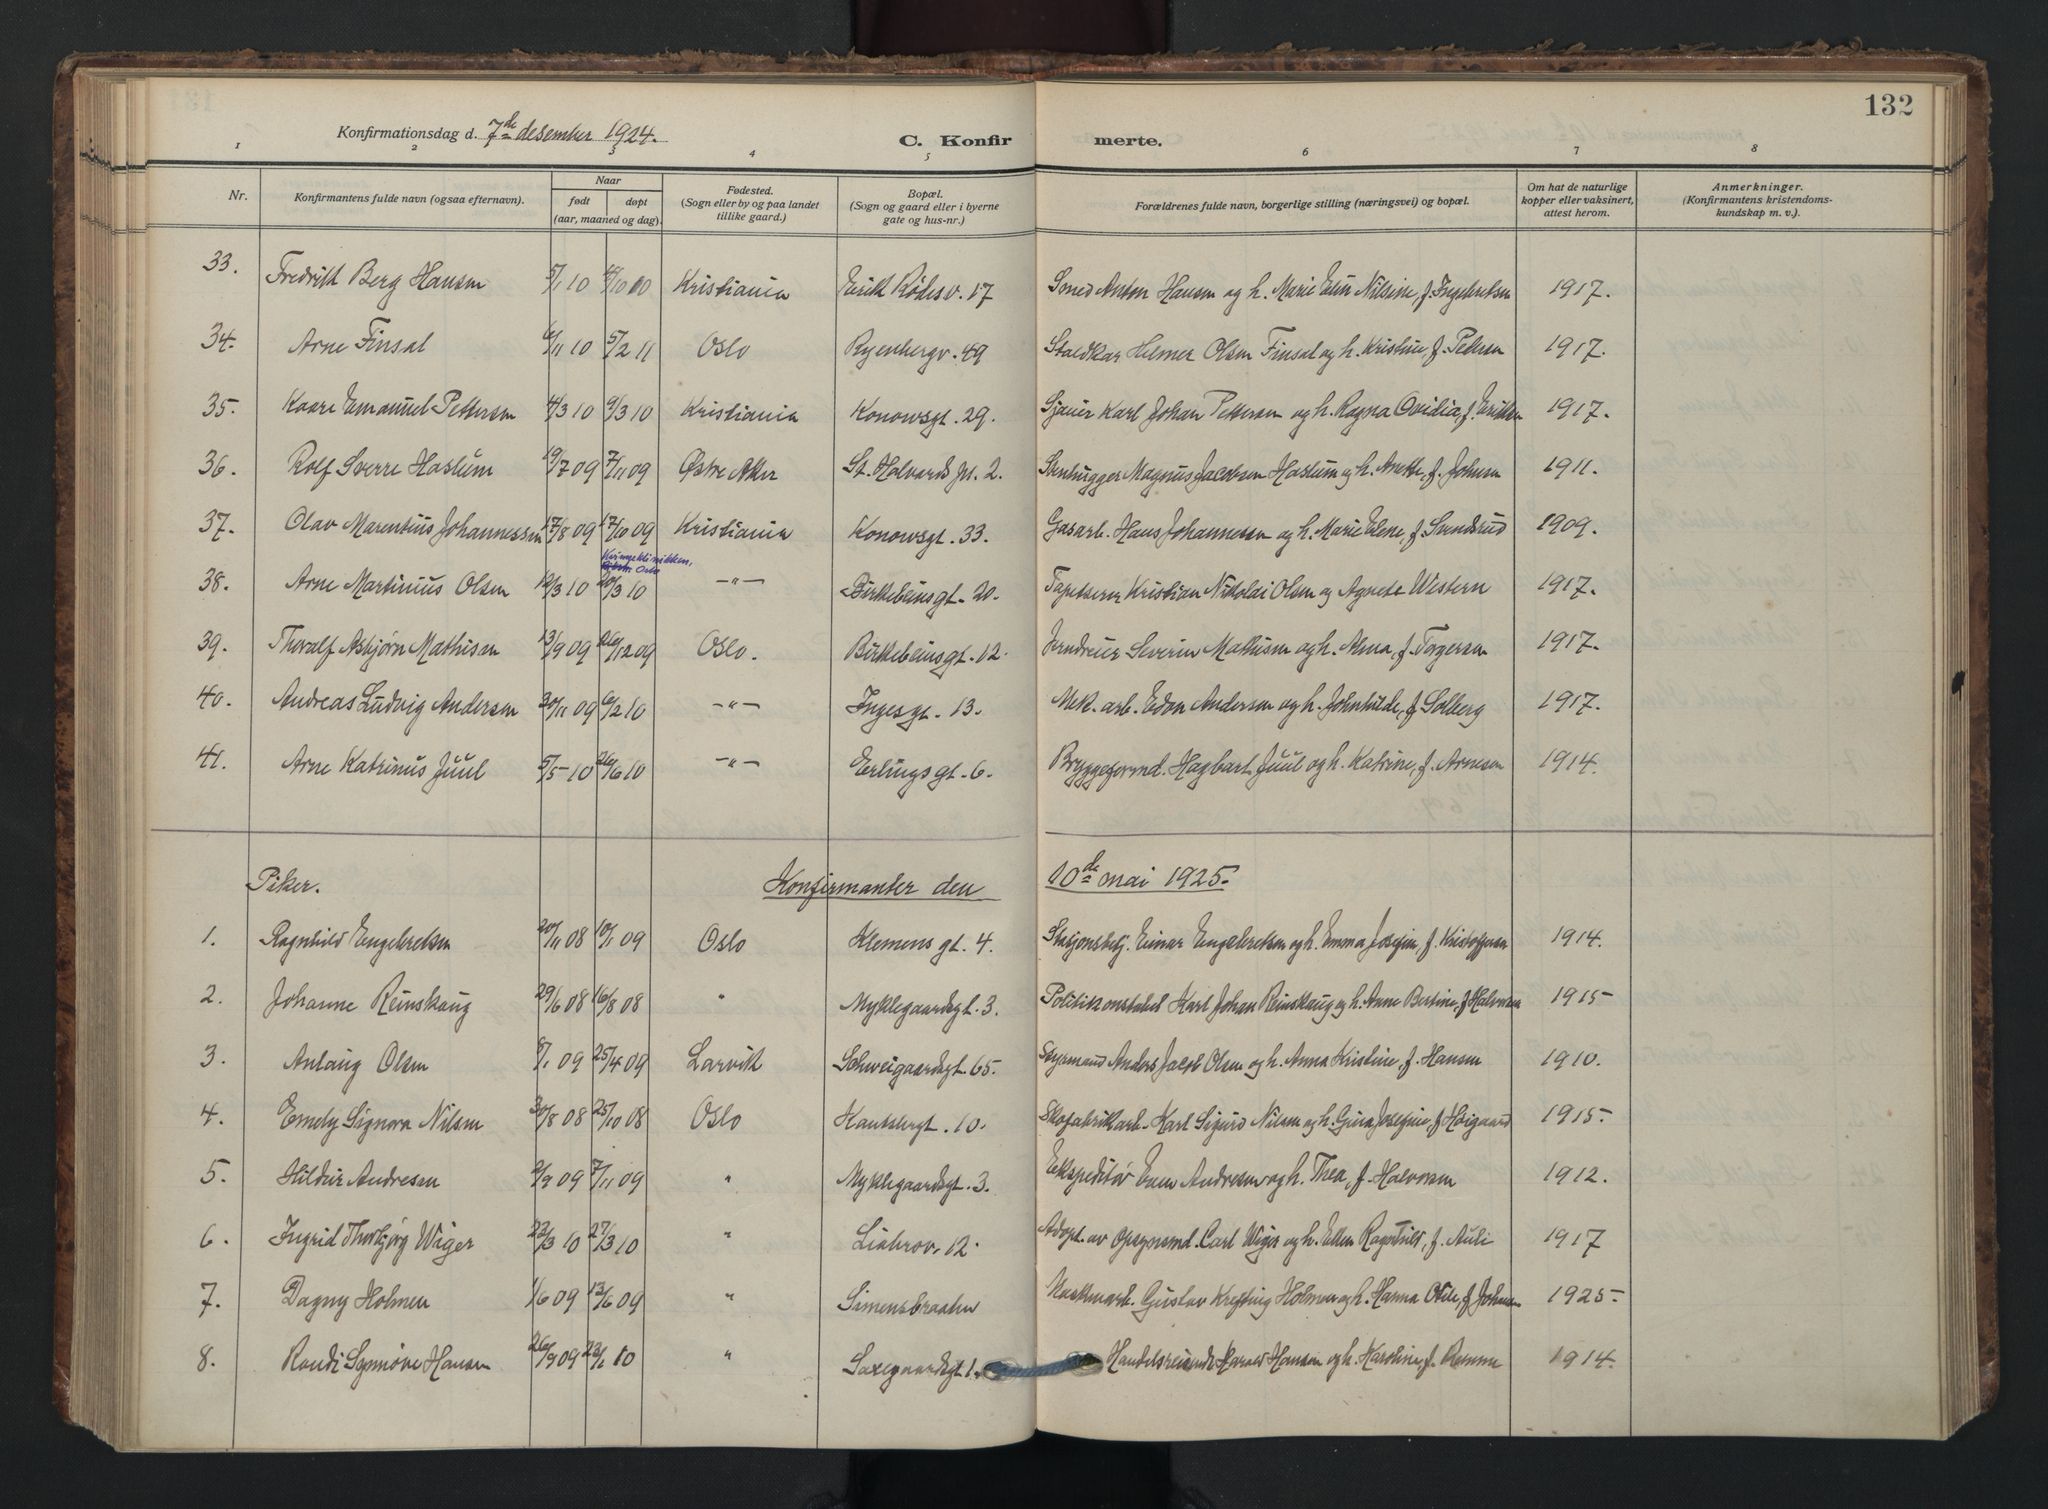 132
Konfirmationsdag d. 7de desember 1924.
C. Konfirmerte.
1 2 3 4 5 6 7 8
Nr.
Konfirmantens fulde navn (ogsaa efternavn).
Naar
født døpt
(aar, maaned og dag).
Fødested.
(Sogn eller by og paa landet
tillike gaard.)
Bopæl.
(Sogn og gaard eller i byerne
gate og hus-nr.)
Forældrenes fulde navn, borgerlige stilling (næringsvei) og bopæl.
Om hat de naturlige
kopper eller vaksinert,
attest herom.
Anmerkninger.
(Konfirmantens kristendoms-
kundskap m. v.)
33. Fredrik Berg Hansen 5/1 10 10 Kristiania Erik Rødesv. 17 Smed Anton Hansen og h. Marie Elin Nilsine, f. Ingebretsen 1917.
34. Arne Finsal 6/11 10 5/2 11 Oslo Ryenbergv. 49 Staldkar Helmer Olsen Finsal og h. Kristine, f. Pedersen 1917.
35. Kaare Emanuel Pettersen 4/3 10 9/3 10 Kristiania Konowsgt. 29. Sjauer Karl Johan Pettersen og h. Ragna Ovidia, f. Eriksen 1917.
36. Rolf Sverre Haslum 19/7 09 7/11 09 Østre Aker St. Halvards pl. 2. Stenhugger Magnus Jacobsen Haslum og h. Anette, f. Johnsen 1911.
37. Olav Marentius Johannessen 17/8 09 17/10 09 Kristiania Konowsgt. 33. Gasarb. Hans Johannessen og h. Marie Elene, f. Svendsrud 1909.
Kvinneklinikken, Oslo
38. Arne Martinius Olsen 12/3 10 20/3 10 -"- Birkebeinsgt. 20. Tapetserer Kristian Nikolai Olsen og Agnete Western 1917.
39. Thoralf Asbjørn Mathisen 13/9 09 26/12 09 Oslo. Birkebeinsgt. 12. Jerndreier Severin Mathisen og h. Alma, f. Torgersen 1917.
40. Andreas Ludvig Andersen 20/11 09 6/2 10 -"- Ingesgt. 13. Mek. arb. Edon Andersen og h. Johnhilde, f. Solberg 1917.
41. Arne Katrinus Juul 5/5 10 26/6 10 -"- Erlingsgt. 6. Bryggeformd. Hagbart Juul og h. Katrine, f. Arnesen 1914.
Piker. Konfirmanter den 10de mai 1925.
1. Ragnhild Engebretsen 20/11 08 10/1 09 Oslo Klemensgt. 4. Stasjonsbetj. Einar Engebretsen og h. Emma Josefine, f. Kristoffersen 1914.
2. Johanne Reinskaug 29/6 08 16/8 08 " Myklegaardsgt. 3. Politikonstabel Karl Johan Reinskaug og h. Anne Bertine, f. Halvorsen 1915
3. Anlaug Olsen 8/1 09 25/4 09 Larvik Schweigaardsgt. 65. Styrmand Anders Jacob Olsen og h. Anna Kristine, f. Hansen 1910.
4. Emely Signora Nilsen 30/8 08 25/10 08 Oslo Kanslergt. 10. Skofabrikarb. Karl Sigurd Nilsen og h. Gina Josefine, f. Høigaard 1915.
5. Hildur Andresen 2/9 09 7/11 09 " Myklegaardsgt. 3. Ekspeditør Even Andresen og h. Thea, f. Halvorsen 1912.
6. Ingrid Thorbjørg Wiger 23/3 10 27/3 10 " Liabrov. 12. Adopt. av opsynsmd. Carl Wiger og h. Ellen Ragnhild, f. Auli 1917
7. Dagny Holmen 1/6 09 13/6 09 " Simensbraaten Maskinarb. Gustav Krefting Holmen og h. Hanna Otile, f. Johnsen 1925.
8. Randi Synnøve Hansen 26/9 09 23/1 10 " Saxegaardsgt. 1. Handelsreisende Harald Hansen og h. Karoline, f. Remme 1914.